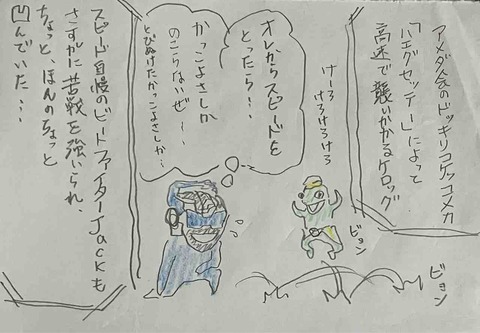 アメダ人のドッキリコケッコメカ
「ハエグセッテー」によって
高速で襲いかかるケロッグ
けーろ
けろけろけろ
オレからスピードを
とったら…
かっこよさしか
のこらないぜ…
とびぬけたかっこよさしか…
ビョン
ビョン
スピード自慢のビートファイターJackも
さすがに苦戦を強いられ、
ちょっと、ほんのちょっと
凹んでいた…